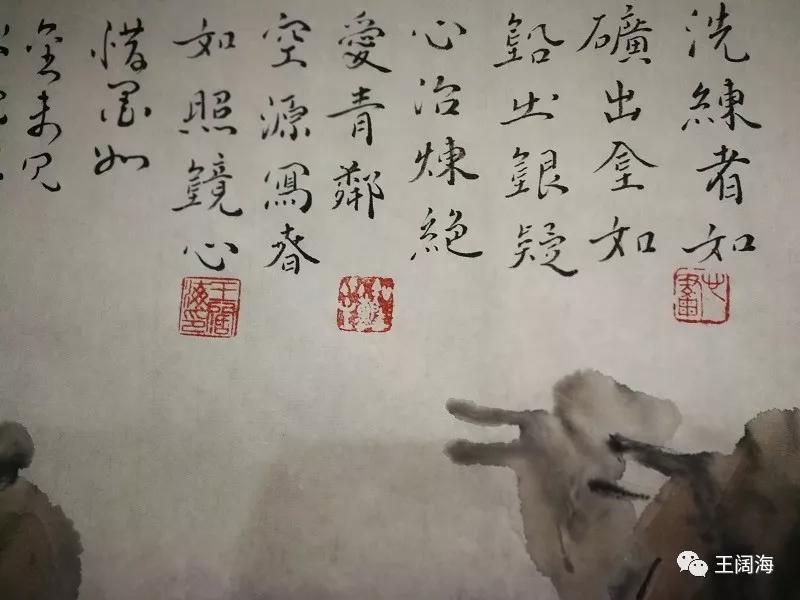 洗練者如
礦出金如
鉛出銀疑
心冶煉絕
愛青鄰
空源寫春
如照鏡心
惜墨如
金未見
王闊海印
王阔海